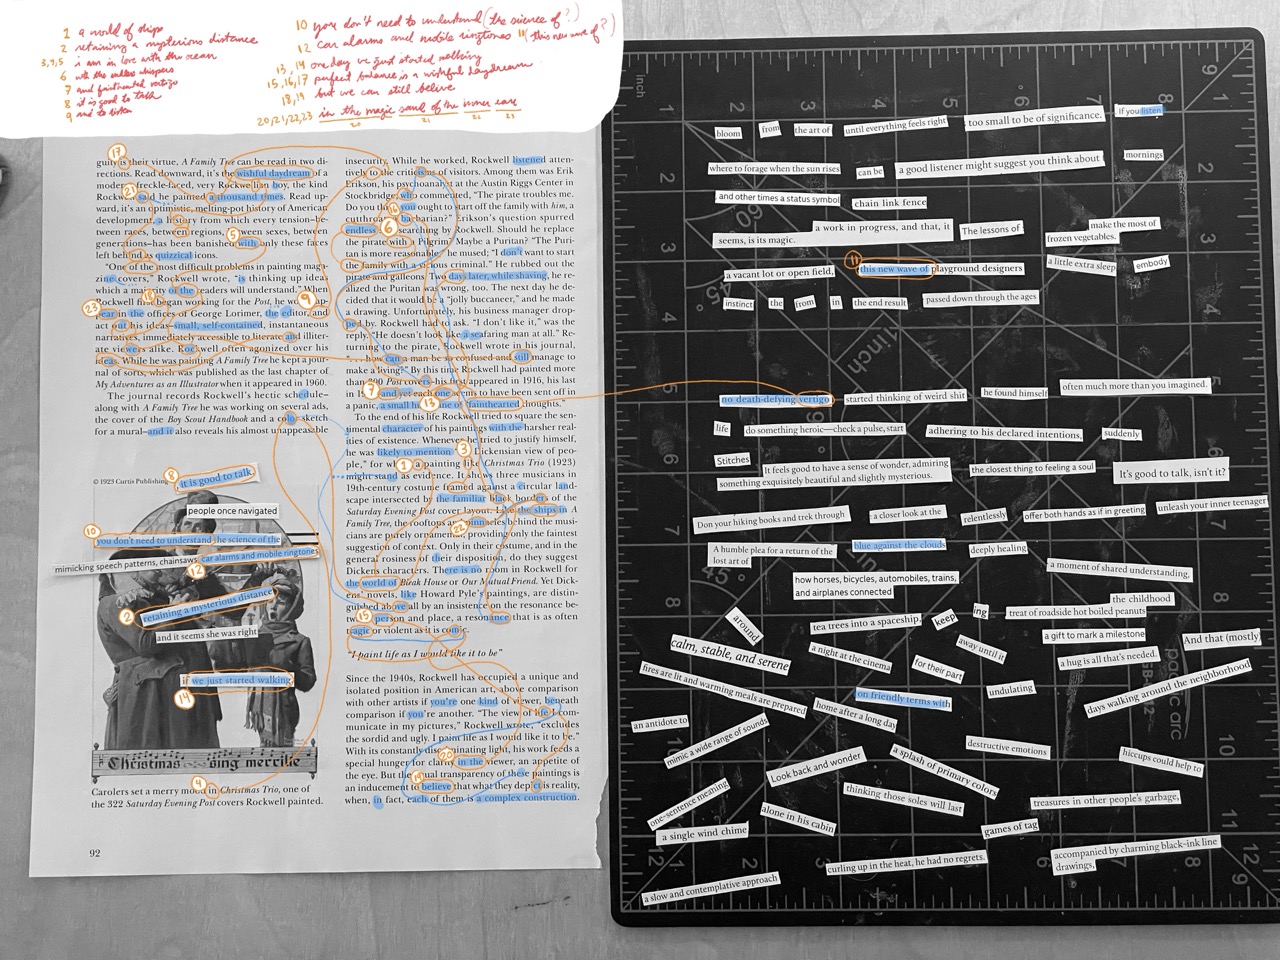 1 a world of ships
2 retaining a mysterious distance
3,4,5 i am in love with the ocean
6 with the endless whispers
7 and fainthearted vertigo
8 it is good to talk
9 and to listen
10 you don't need to understand (the science of?)
12 car alarms and mobile ringtones 11 (this new wave of?)
13, 14 one day we just started walking
15, 16, 17 perfect balance is a wishful daydream
18, 19 but we can still believe
20, 21, 22, 23 in the magic soul of the inner ear
20 21 22 23
guity is their virtue, A Family Tree can be read in two di-
rections. Read downward, it's the wishful daydream of a
modern freckle-faced, very Rockwellian boy, the kind
Rockwell said he painted a thousand times. Read up-
ward, it's an optimistic, melting-pot history of American
development, a history from which every tension—be-
tween races, between regions, between sexes, between
generations—has been banished with only these faces
left behind as quizzical icons.
"One of the most difficult problems in painting maga-
zine covers," Rockwell wrote, "is thinking up ideas
which a majority of the readers will understand." When
Rockwell first began working for the Post, he would ap-
pear in the offices of George Lorimer, the editor, and
act out his ideas—small, self-contained, instantaneous
narratives, immediately accessible to literate and illiter-
ate viewers alike. Rockwell often agonized over his
ideas. While he was painting A Family Tree he kept a jour-
nal of sorts, which was published as the last chapter of
My Adventures as an Illustrator when it appeared in 1960.
The journal records Rockwell's hectic schedule—
along with A Family Tree he was working on several ads,
the cover of the Boy Scout Handbook and a color sketch
for a mural—and it also reveals his almost unappeasable
© 1923 Curtis Publishing
8
it is good to talk
people once navigated
10
you don't need to understand the science of the
mimicking speech patterns, chainsaws, car alarms and mobile ringtones
12
2
retaining a mysterious distance
and it seems she was right
if we just started walking
14
Christmas sing merrilie
4
Carolers set a merry mood in Christmas Trio, one of
the 322 Saturday Evening Post covers Rockwell painted.
92
insecurity. While he worked, Rockwell listened atten-
tively to the critics of visitors. Among them was Erik
Erikson, his psychoanalyst at the Austin Riggs Center in
Stockbridge, who commented, "The pirate troubles me.
Do you think you ought to start off the family with him, a
cutthroat, a barbarian?" Erikson's question spurred
endless searching by Rockwell. Should he replace
the pirate with a Pilgrim? Maybe a Puritan? "The Puri-
tan is more reasonable," he mused; "I don't want to start
the family with a vicious criminal." He rubbed out the
pirate and galleons. Two days later, while shaving, he re-
alized that the Puritan was wrong, too. The next day he de-
cided that it would be a "jolly buccaneer," and he made
a drawing. Unfortunately, his business manager drop-
ped by. Rockwell had to ask. "I don't like it," was the
reply. "He doesn't look like a seafaring man at all." Re-
turning to the pirate, Rockwell wrote in his journal,
". . . how can a man be so confused and still manage to
make a living?" By this time Rockwell had painted more
than 300 Post covers—his first appeared in 1916, his last
in 1963—and yet each one seems to have been sent off in
a panic, a small hurricane of fainthearted thoughts.
To the end of his life Rockwell tried to square the sen-
timental character of his paintings with the harsher real-
ities of existence. Whenever he tried to justify himself,
he was likely to mention a Dickensian view of peo-
ple," for which a painting like Christmas Trio (1923)
might stand as evidence. It shows three musicians in
19th-century costume framed against a circular land-
scape intersected by the familiar black borders of the
Saturday Evening Post cover layout. Like the ships in A
Family Tree, the rooftops and pinnacles behind the musi-
cians are purely ornamental, providing only the faintest
suggestion of context. Only in their costume, and in the
general rosiness of their disposition, do they suggest
Dickens characters. There is no room in Rockwell for
the world of Bleak House or Our Mutual Friend. Yet Dick-
ens' novels, like Howard Pyle's paintings, are distin-
guished above all by an insistence on the resonance be-
tween person and place, a resonance that is as often
tragic or violent as it is comic.
"I paint life as I would like it to be"
Since the 1940s, Rockwell has occupied a unique and
isolated position in American art, above comparison
with other artists if you're one kind of viewer, beneath
comparison if you're another. "The view of life I com-
municate in my pictures," Rockwell wrote, "excludes
the sordid and ugly. I paint life as I would like it to be."
With its constantly discriminating light, his work feeds a
special hunger for clarity in the viewer, an appetite of
the eye. But the visual transparency of these paintings is
an inducement to believe that what they depict is reality,
when, in fact, each of them is a complex construction.
inch
bloom
from
the art of
until everything feels right
too small to be of significance.
If you listen
where to forage when the sun rises
can be
a good listener might suggest you think about
mornings
and other times a status symbol
chain link fence
seems, is its magic.
a work in progress, and that, it
The lessons of
make the most of
frozen vegetables.
a vacant lot or open field,
11
this new wave of playground designers
a little extra sleep
embody
instinct
the
from
in
the end result
passed down through the ages
no death-defying vertigo
started thinking of weird shit
he found himself
often much more than you imagined.
life
do something heroic—check a pulse, start
adhering to his declared intentions,
suddenly
Stitches
It feels good to have a sense of wonder, admiring
something exquisitely beautiful and slightly mysterious.
the closest thing to feeling a soul
It's good to talk, isn't it?
Don your hiking books and trek through
a closer look at the
relentlessly
offer both hands as if in greeting
unleash your inner teenager
A humble plea for a return of the
lost art of
blue against the clouds
deeply healing
a moment of shared understanding,
how horses, bicycles, automobiles, trains,
and airplanes connected
the childhood
around
tea trees into a spaceship,
keep
ing
treat of roadside hot boiled peanuts
calm, stable, and serene
a night at the cinema
away until it
a gift to mark a milestone
And that (mostly)
fires are lit and warming meals are prepared
for their part
a hug is all that's needed.
on friendly terms with
undulating
days walking around the neighborhood
home after a long day
an antidote to
mimic a wide range of sounds
Look back and wonder
a splash of primary colors
destructive emotions
hiccups could help to
one-sentence meaning
thinking those soles will last
treasures in other people's garbage,
a single wind chime
alone in his cabin
games of tag
curling up in the heat, he had no regrets.
accompanied by charming black-ink line
drawings,
a slow and contemplative approach